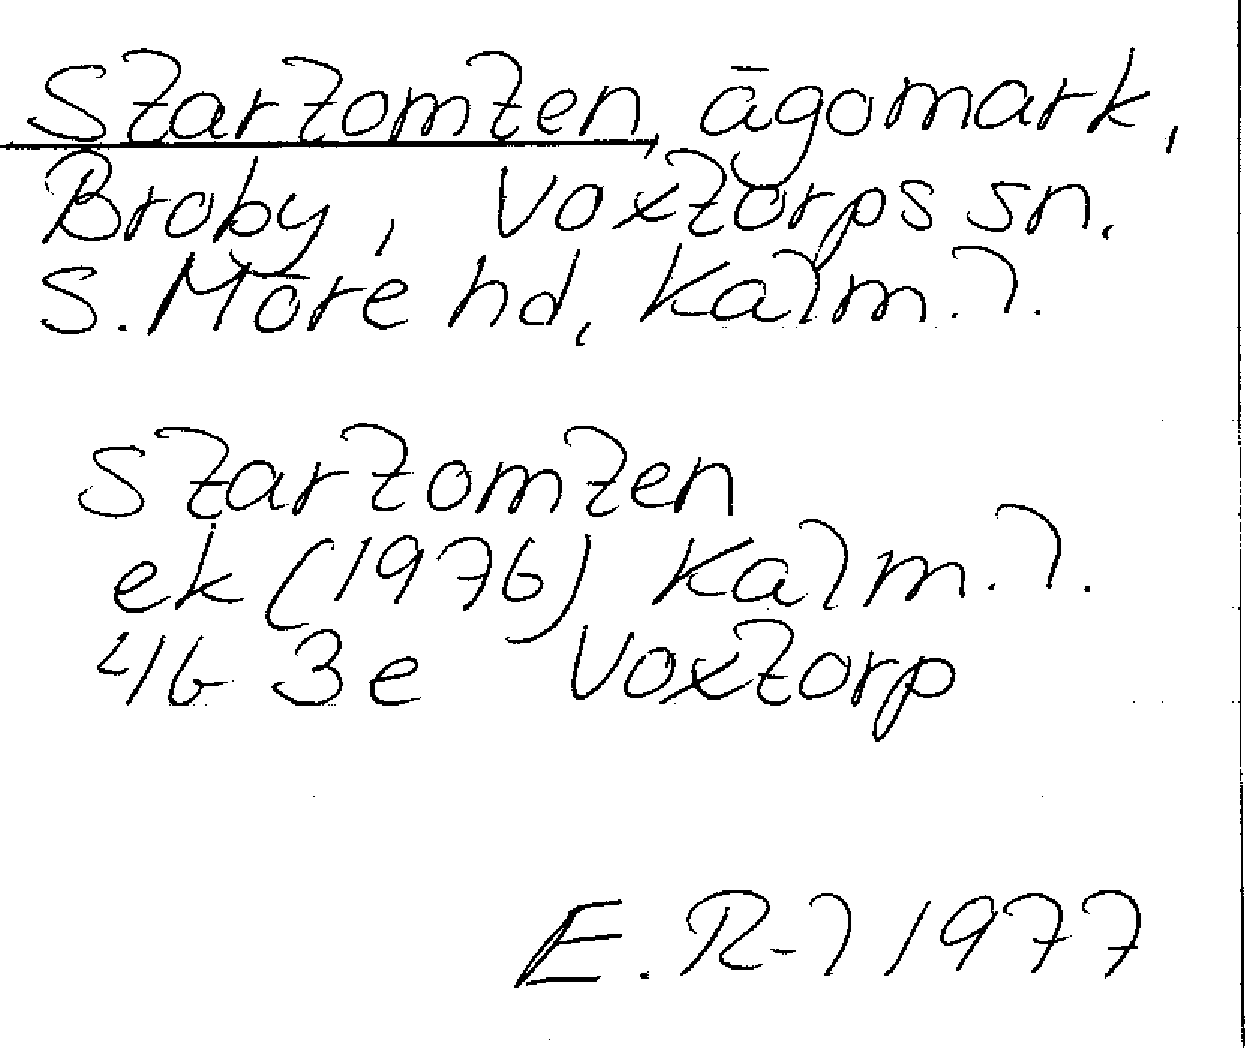 Startomten, ägomark,
Broby, Voxtorps sn.
S. Möre hd, Kalm. l.
Startomten
ek (1976) Kalm. l.
4G 3e Voxtorp
E. R-l 1977